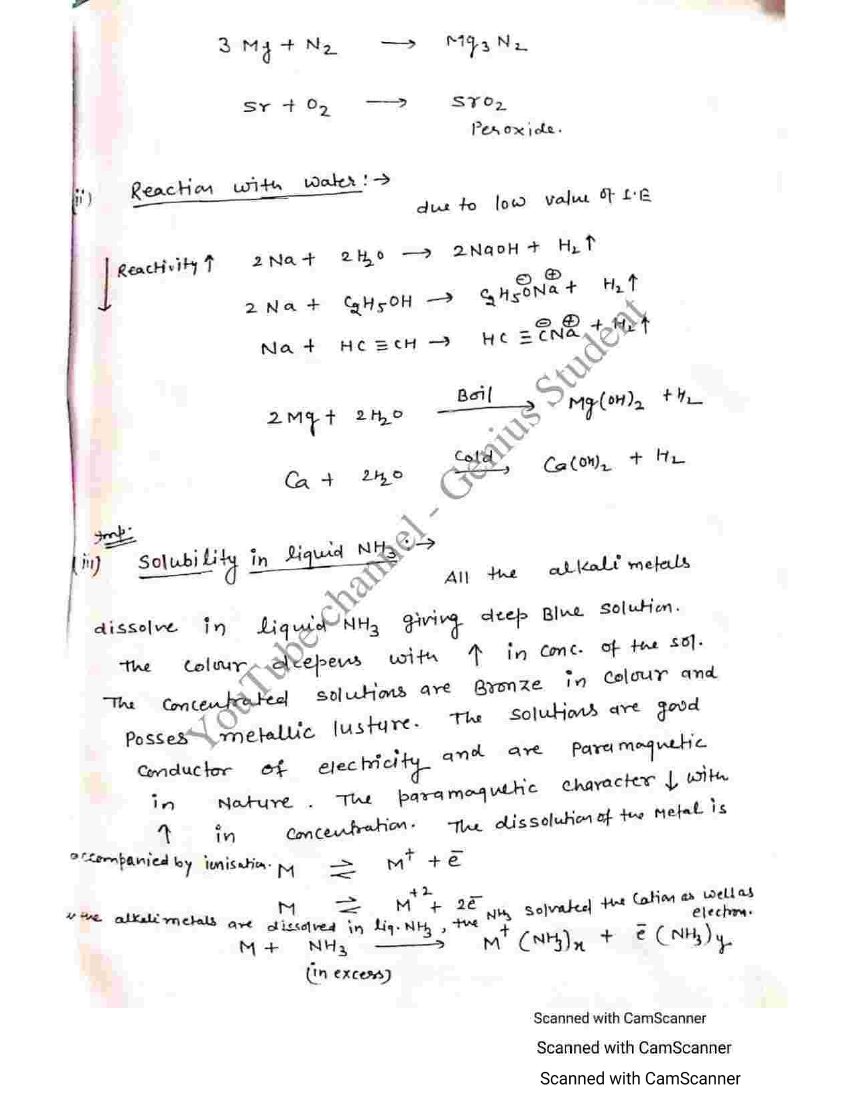 3 Mg + N2 → Mg3 N2
Sr + O2 → SrO2
Peroxide.
(ii) Reaction with water:→
due to low value of I.E
↓ Reactivity ↑ 2 Na + 2 H2O → 2 NaOH + H2 ↑
2 Na + C2H5OH → C2H5O⊖Na⊕ + H2 ↑
Na + HC ≡ CH → HC ≡ C⊖Na⊕ + H2 ↑
2 Mg + 2 H2O Boil → Mg(OH)2 + H2
Ca + 2H2O Cold → Ca(OH)2 + H2
Imp.
(iii) Solubility in liquid NH3 :→
All the alkali metals
dissolve in liquid NH3 giving deep Blue solution.
The colour deepens with ↑ in conc. of the sol.
The concentrated solutions are Bronze in colour and
Posses metallic lusture. The solutions are good
conductor of electricity and are paramagnetic
in Nature. The paramagnetic character ↓ with
↑ in concentration. The dissolution of the metal is
accompanied by ionisation. M ⇌ M+ + ē
M ⇌ M+2 + 2ē
alkali metals are dissolved in liq. NH3, the NH3 solvated the Cation as well as
electron.
M + NH3 → M+ (NH3)x + ē (NH3)y
(in excess)
YouTube channel - Genius Student
Scanned with CamScanner
Scanned with CamScanner
Scanned with CamScanner